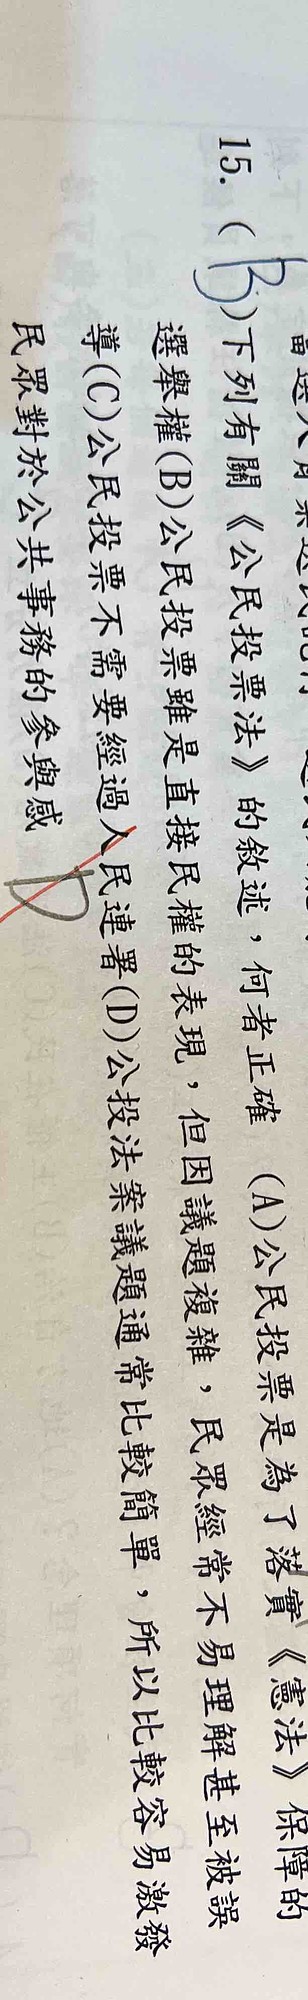 15. (B)下列有關《公民投票法》的敘述，何者正確 (A)公民投票是為了落實《憲法》保障的
選舉權(B)公民投票雖是直接民權的表現，但因議題複雜，民眾經常不易理解甚至被誤
導(C)公民投票不需要經過人民連署(D)公投法案議題通常比較簡單，所以比較容易激發
民眾對於公共事務的參與感
D